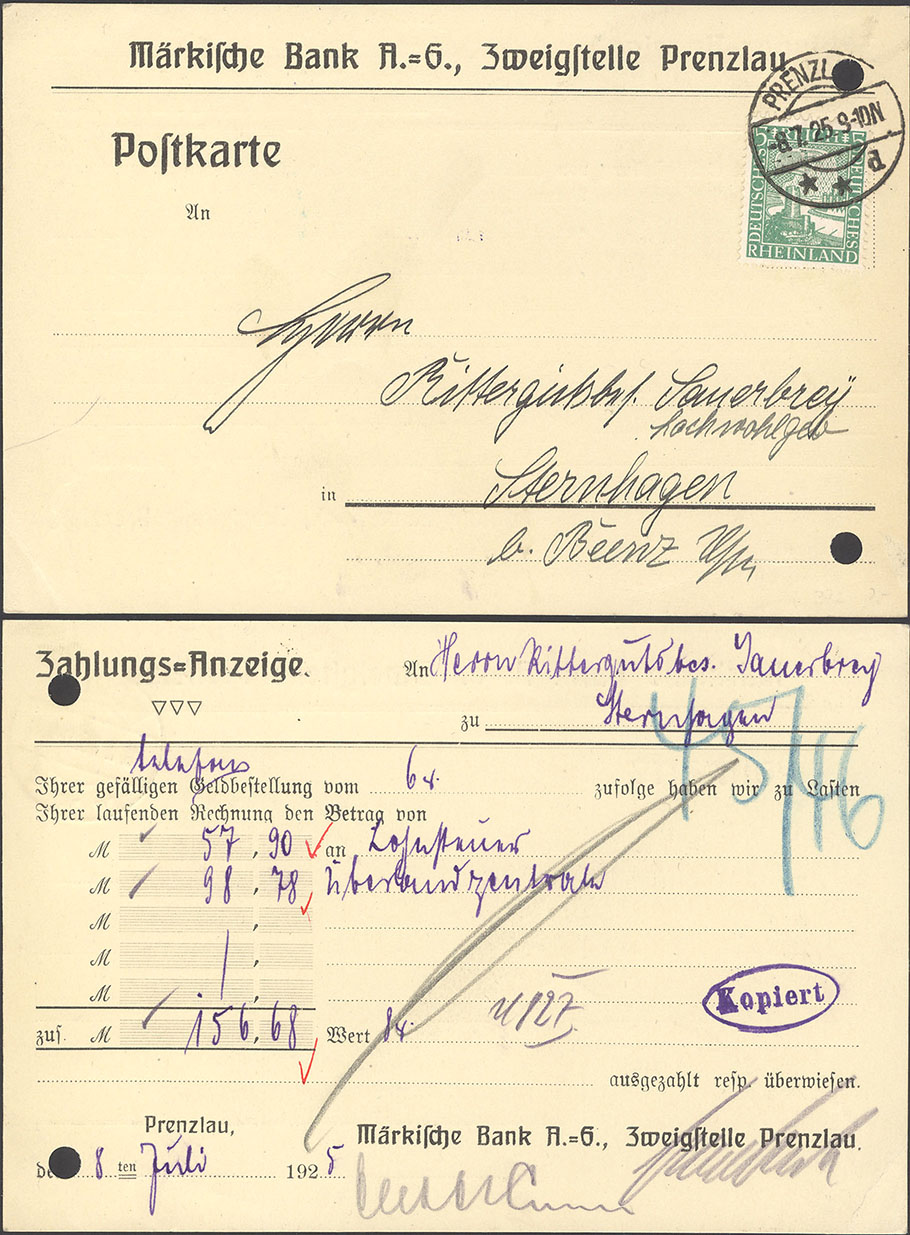 Märkische Bank A.=G., Zweigstelle Prenzlau
Postkarte
PRENZL
-8.7.25.9-10N
d
5 5
DEUTSCHES DEUTSCHES
RHEINLAND
An
Herrn
Rittergutsbes. Sauerbrey
Hochwohlgeb
in Sternhagen
b. Beenz U/M
Zahlungs=Anzeige.
An Herrn Rittergutsbes. Sauerbrey
zu Sternhagen
45/46
telefon
Ihrer gefälligen Geldbestellung vom 6t. zufolge haben wir zu Lasten
Ihrer laufenden Rechnung den Betrag von
M 57, 90 an Lohnsteuer
M 98, 78 Überlandzentrale
M ,
M ,
M ,
Kopiert
zus. M 156, 68 Wert 8t.
ausgezahlt resp. überwiesen.
Prenzlau,
Märkische Bank A.=G., Zweigstelle Prenzlau.
8 ten Juli 1925